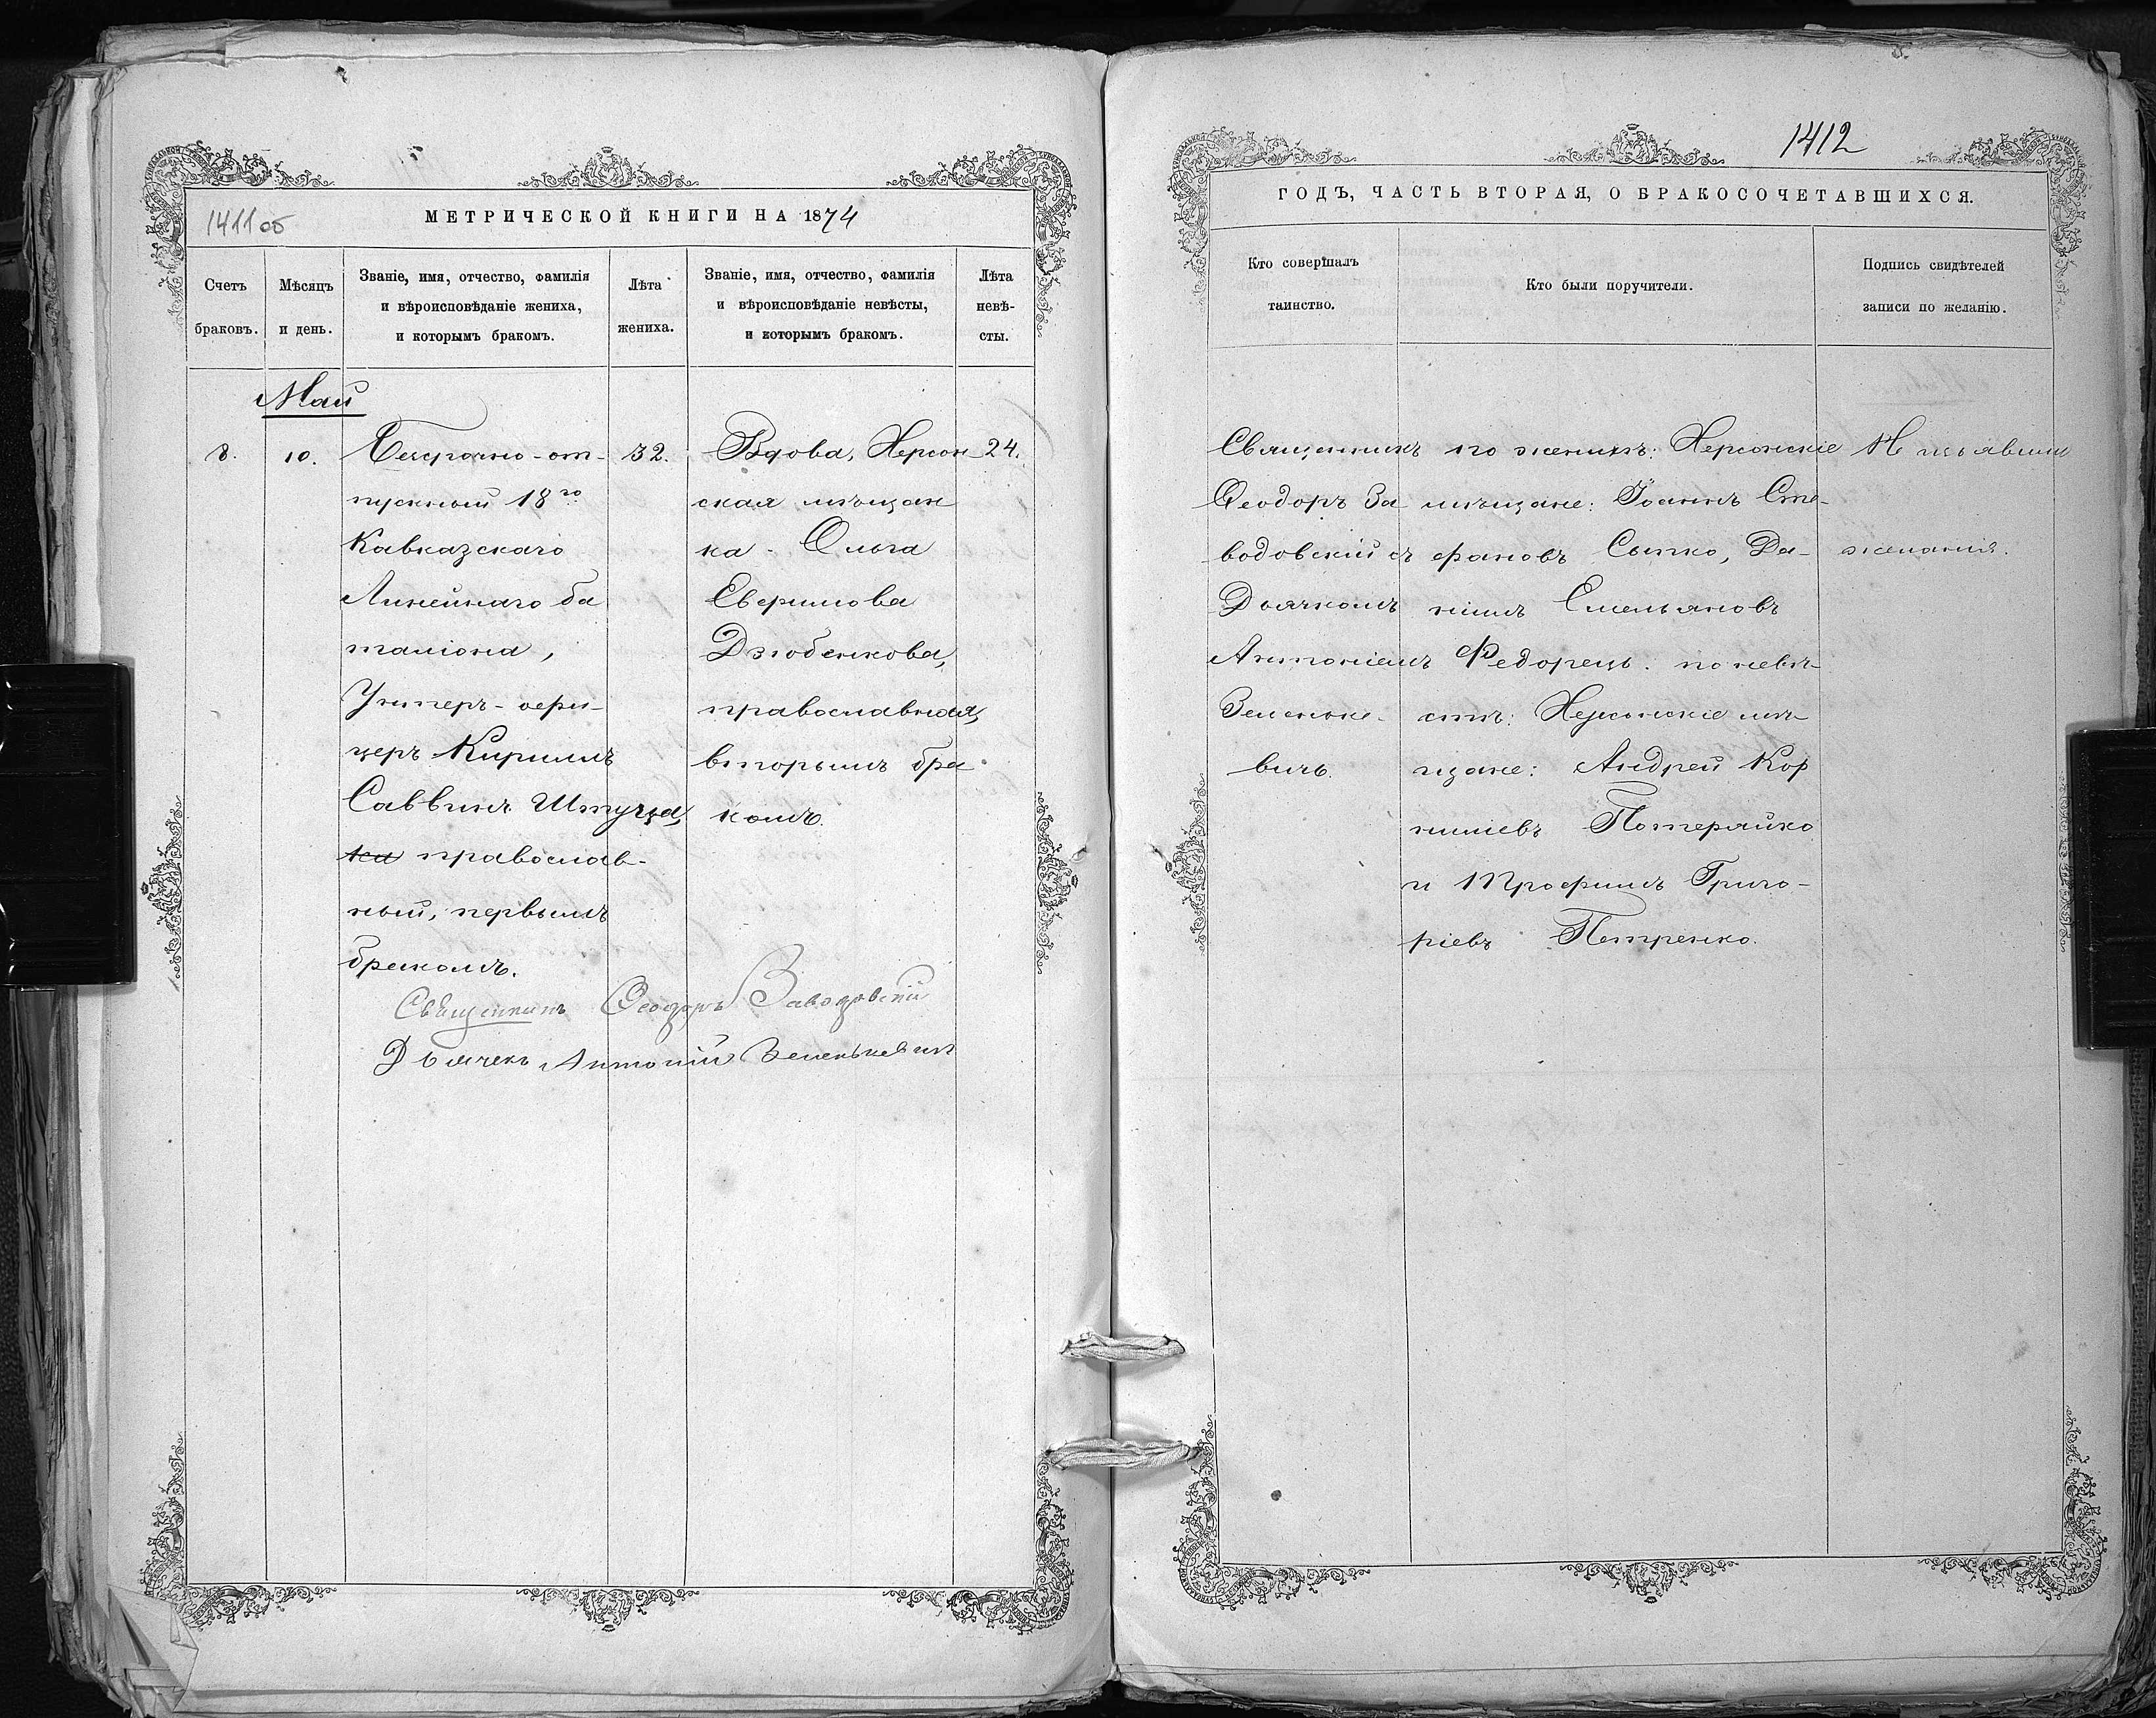 1411об
МЕТРИЧЕСКОЙ КНИГИ НА 1874
Счетъ браковъ.
Мѣсяцъ и день.
Званіе, имя, отчество, фамилія
и вѣроисповѣданіе жениха,
и которымъ бракомъ.
Лѣта
жениха.
Званіе, имя, отчество, фамилія
и вѣроисповѣданіе невѣсты,
и которымъ бракомъ.
Лѣта
невѣ-
сты.
Май
8.
10.
Безсрочно-от-
пускный 18го
Кавказскаго
Линейнаго ба
таліона,
Унтеръ-офи-
церъ Кириллъ
Саввинъ Штуца,
ка православ-
ный, первымъ
бракомъ.
32.
Вдова, Херсон
ская мѣщан
ка Ольга
Евфимова
Дзюбенкова,
православная,
вторымъ бра
комъ.
24.
Священникъ Ѳеодоръ Заводовскій
Дьячекъ Антоній Зеленкевичъ
1412
ГОДЪ, ЧАСТЬ ВТОРАЯ, О БРАКОСОЧЕТАВШИХСЯ.
Кто совершалъ
таинство.
Кто были поручители.
Подпись свидѣтелей
записи по желанію.
Священникъ
Ѳеодоръ За
водовскій съ
Дьячкомъ
Антоніемъ
Зеленке-
вичъ.
по женихѣ: Херсонскіе
мѣщане: Іоаннъ Сте-
фановъ Сытко, Да-
ніилъ Емельяновъ
Федорецъ. по невѣ-
стѣ: Херсонскіе мѣ
щане: Андрей Кор
ниліевъ Потерайко
и Трофимъ Григо-
ріевъ Петренко.
изъявили
желанія.